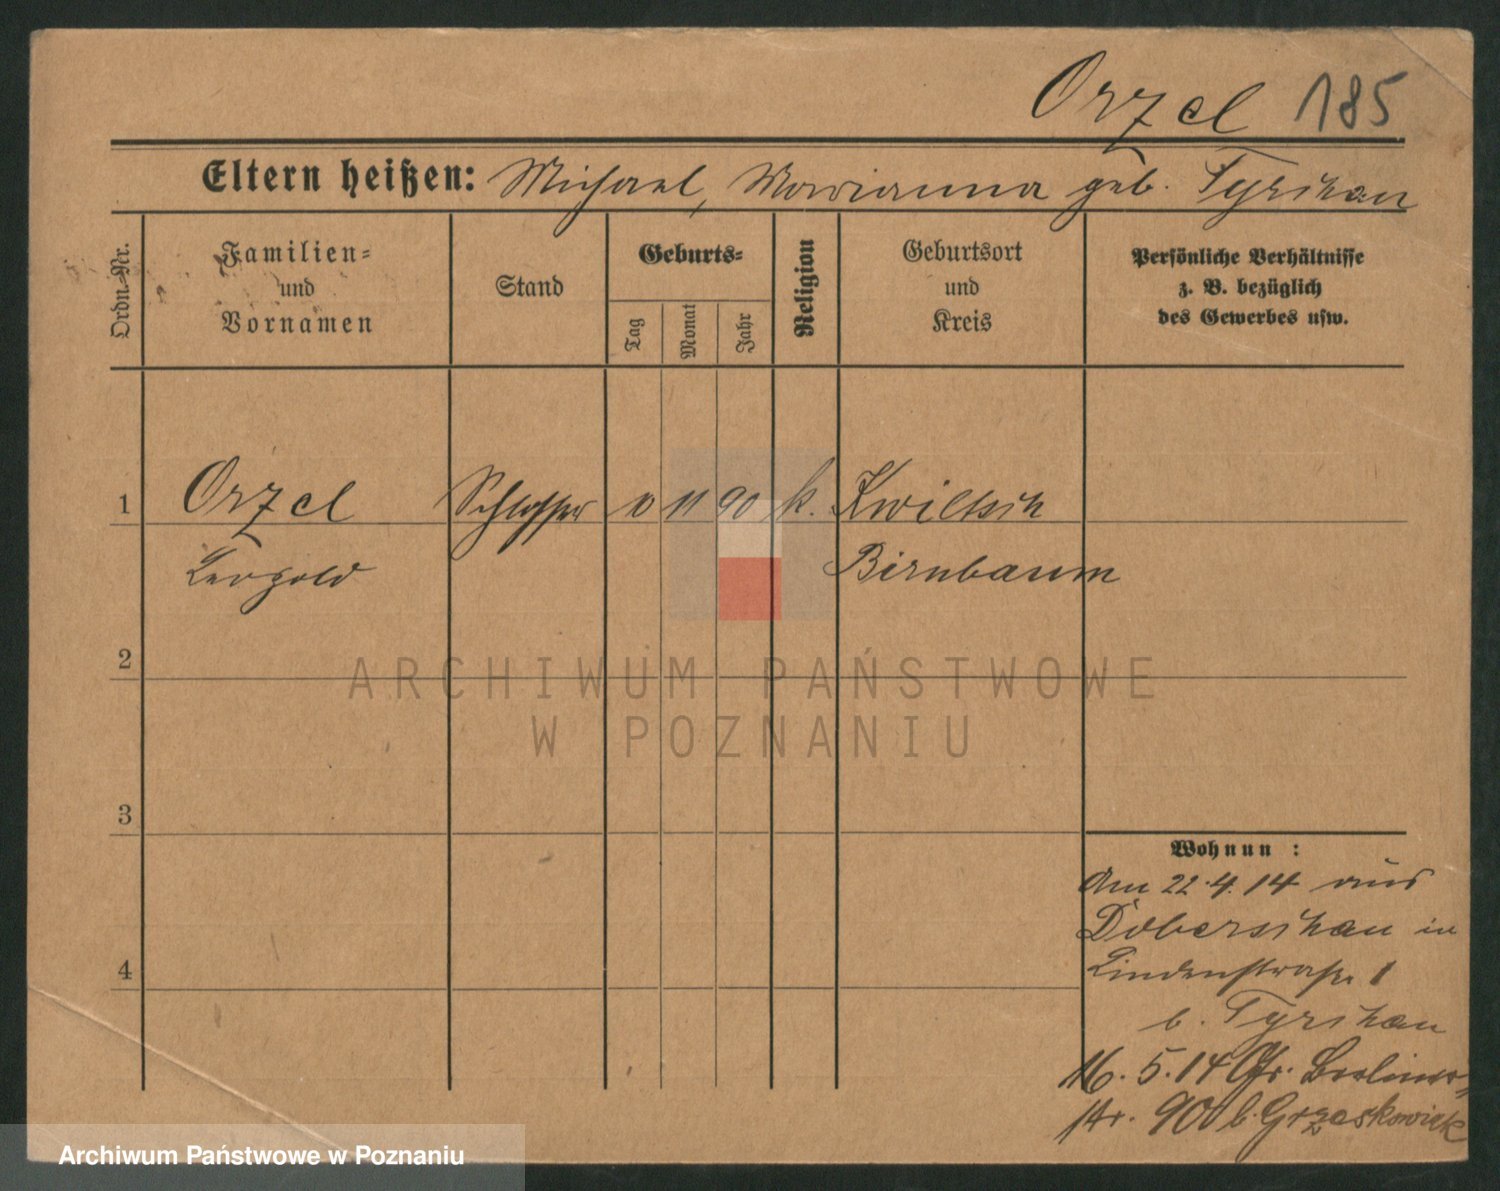 Orzel 185
Eltern heißen: Michael, Marianna geb. Tyrchan
Ordn.-Nr.
Familien-
und
Vornamen
Stand
Geburts-
Tag
Monat
Jahr
Religion
Geburtsort
und
Kreis
Persönliche Verhältnisse
z. B. bezüglich
des Gewerbes usw.
1 Orzel Schlosser 10 11 90 k. Kwiltsch
Leopold Birnbaum
2
3
4
Wohnun :
Am 22.4.14 aus
Doberschau in
Lindenstraße 1
b. Tyrchan
16.5.14 Gr. Berliner-
str. 90 b. Grzeskowiak
ARCHIWUM PAŃSTWOWE
W POZNANIU
Archiwum Państwowe w Poznaniu